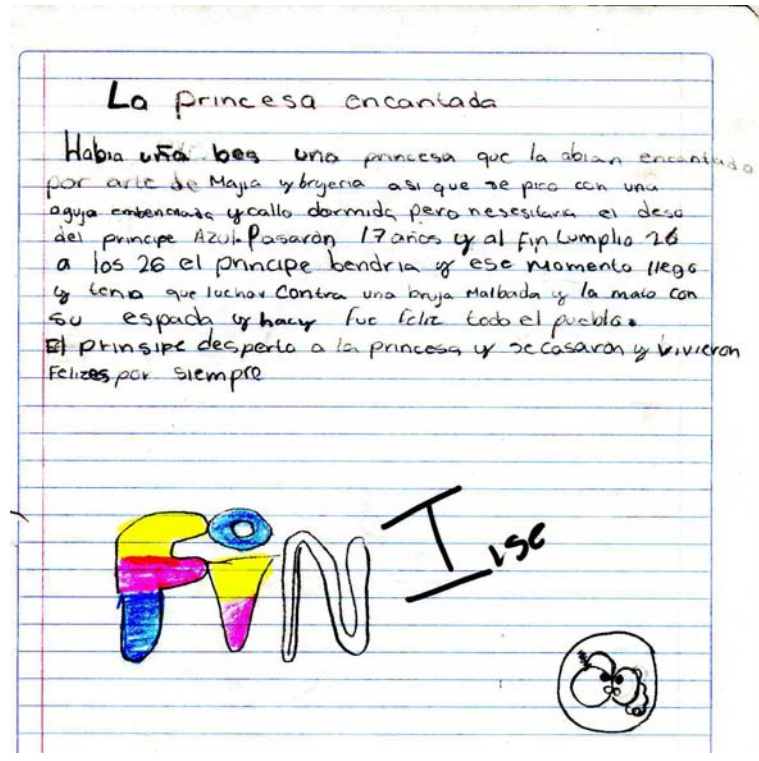 La princesa encantada
Habia uña bes una princesa que la abian encantado
por arte de Majia y brujeria asi que se pico con una
aguja embenenada y callo dormida pero nesesitava el deso
del principe Azul. Pasarón 17 años y al Fin Cumplio 26
a los 26 el principe bendria y ese momento llego
y tenia que luchar Contra una bruja Malbada y la mato con
su espada y hacy fue feliz todo el pueblo.
El prinsipe desperto a la princesa y se casaron y vivieron
Felizes por siempre
FiN
Ilse